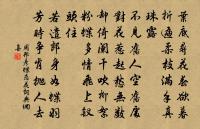 葉底尋花春欲暮
折遍柔枝滿手真
珠露
不見舊人空舊處
對花惹起愁無數
却倚闌干吹柳絮
粉蝶多情飛上釵
頭住
若遣郎身如蝶羽
芳時爭肯拋人去
周邦彥蝶戀花詞典網